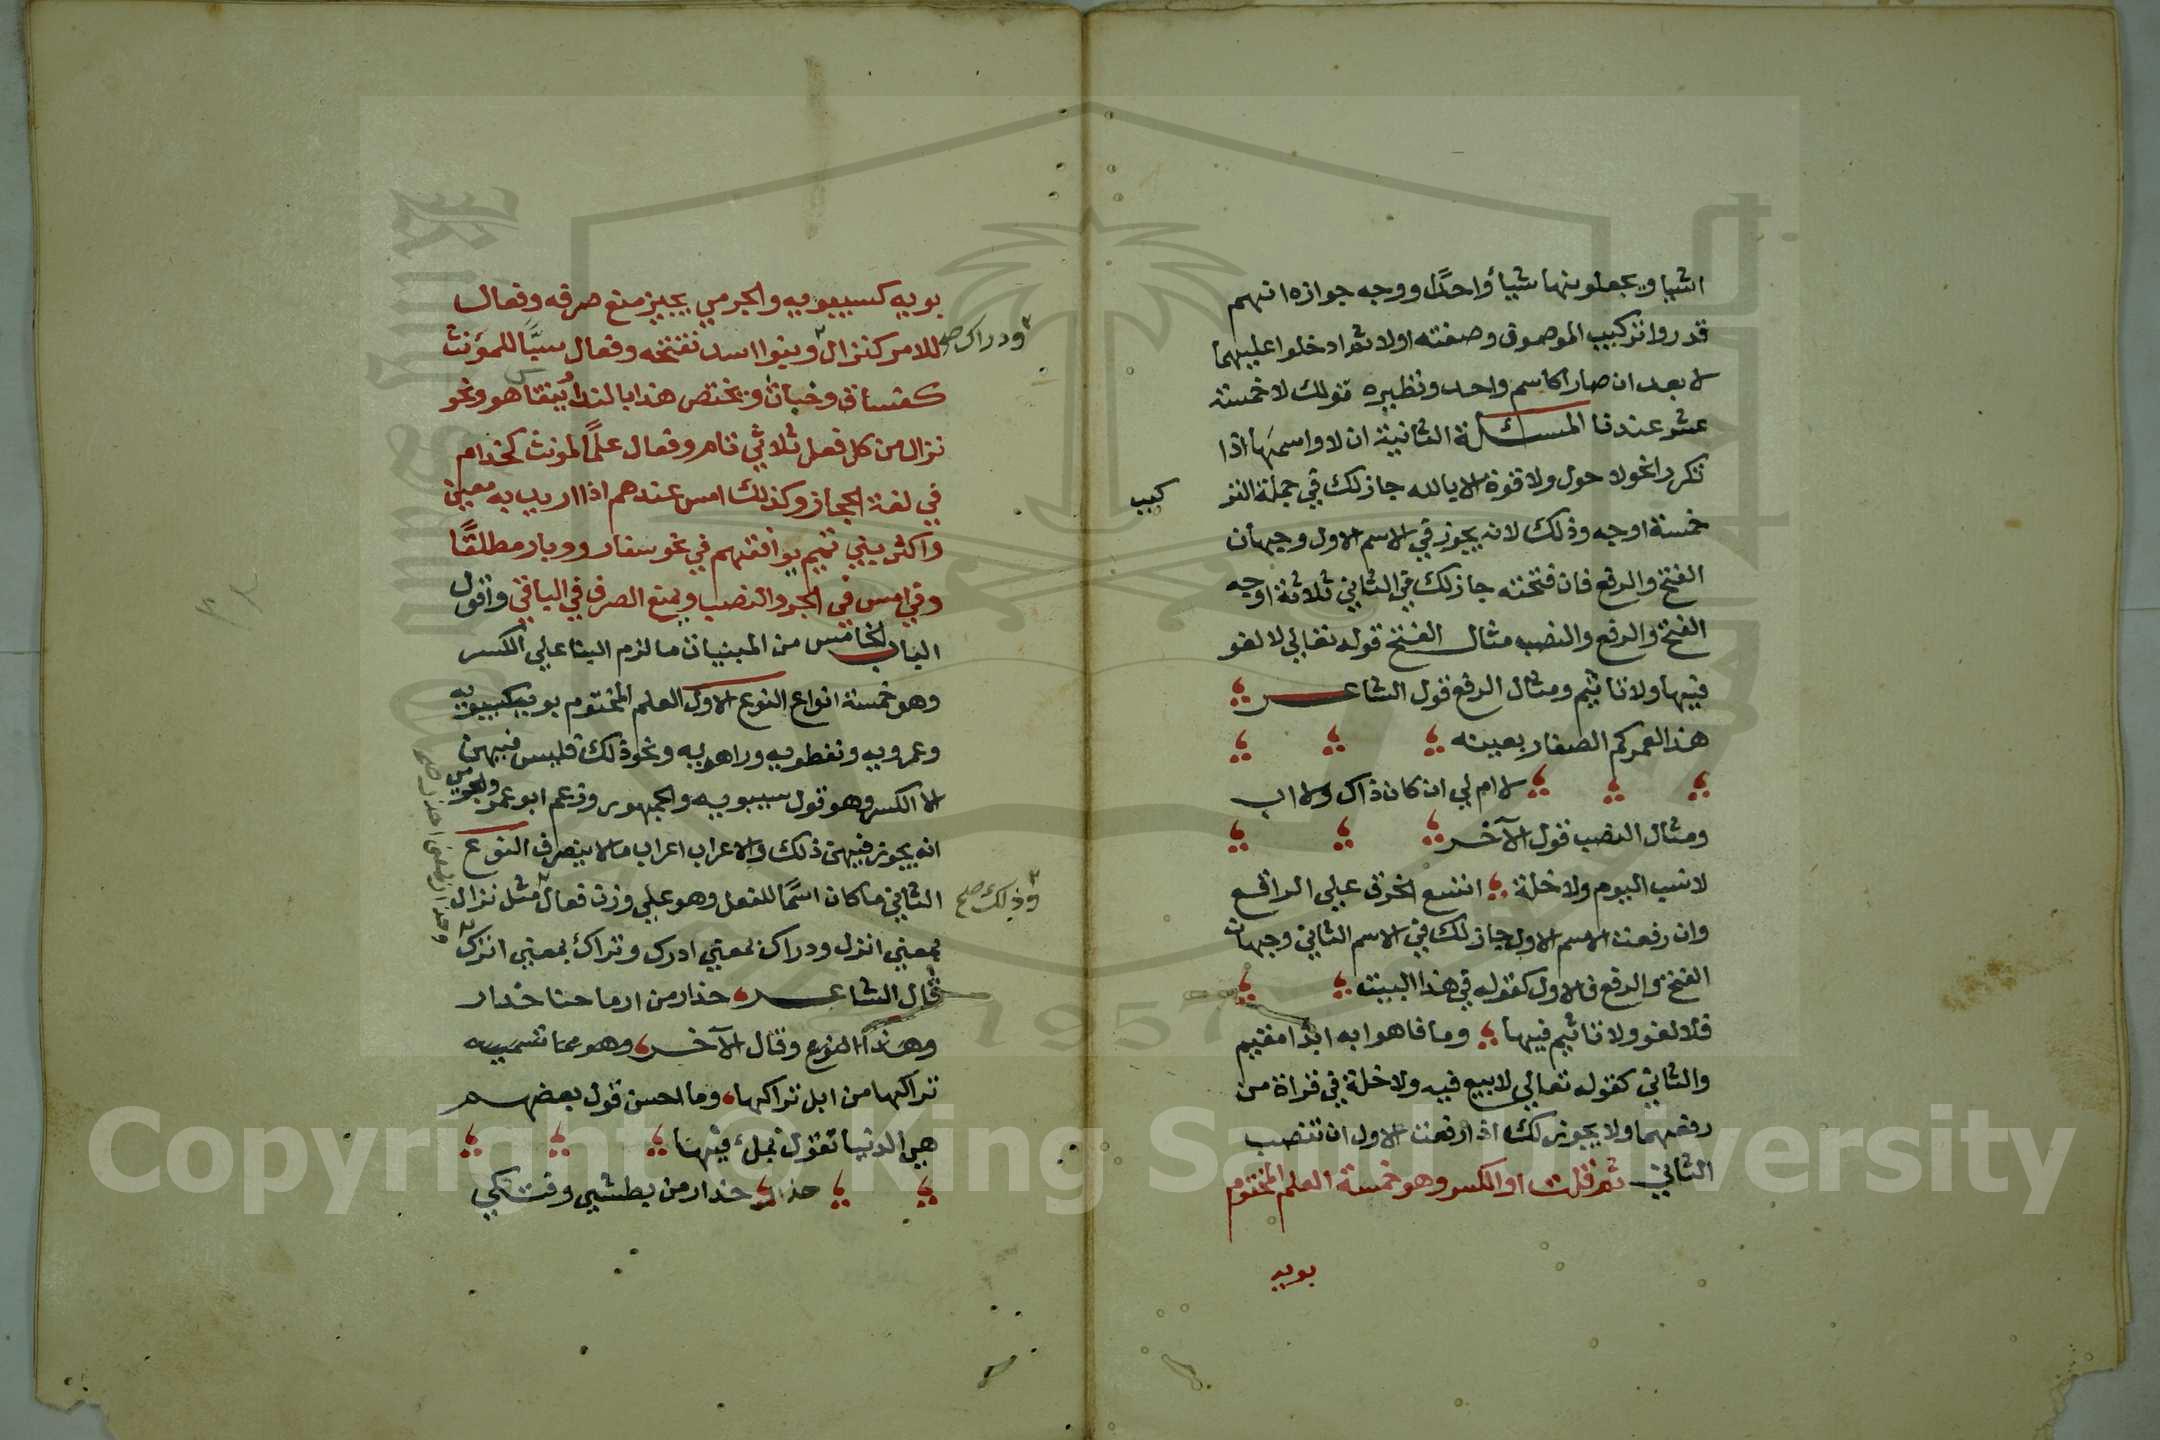 اشيا ويجعلونها شيأ واحدًا ووجه جوازه انهم
قدروا تركيب الموصوف وصفته اولا ثم ادخلوا عليهما
لا بعد ان صارا كاسم واحد ونظيره قولك لا خمسة
عشر عندنا المسئلة الثانية ان لا واسمها اذا
تكررا نحو لا حول ولا قوة الا بالله جاز لك في جملة التر
كيب
خمسة اوجه وذلك لانه يجوز في الاسم الاول وجهان
الفتح والرفع فان فتحته جاز لك في الثاني ثلاثة اوجه
الفتح والرفع والنصب مثال الفتح قوله تعالى لا لغو
فيها ولا تاثيم ومثال الرفع قول الشاعر
هذا لعمركم الصغار بعينه
لا ام لي ان كان ذاك ولا اب
ومثال النصب قول الآخر
لا نسب اليوم ولا خلة اتسع الخرق على الراقع
وان رفعت الاسم الاول جاز لك في الاسم الثاني وجهان
الفتح والرفع فالاول كقوله في هذا البيت
فلا لغو ولا تاثيم فيها وما فاهوا به ابدا مقيم
والثاني كقوله تعالى لا بيع فيه ولا خلة في قراة من
رفعهما ولا يجوز لك اذا رفعت الاول ان تنصب
الثاني ثم قلت او الكسر وهو خمسة العلم المختوم
بويه
بويه كسيبويه والجرمي يجيز منع صرفه وفعال
للامر كنزال وبنوا اسد تفتحه وفعال سبًّا للمؤنث
ودراك صح
كفساق وخباث ويختص هذا بالندا وينقاس هو ونحو
نزال من كل فعل ثلاثي تام وفعال علمًا لمونث كحذام
في لغة الحجاز وكذلك امس عندهم اذا اريد به معين
واكثر بني تميم يوافقهم في نحو سفار ووبار مطلقًا
وفي امس في الجر والنصب ويمنع الصرف في الباقي واقول
الباب الخامس من المبنيات ما لزم البنا على الكسر
وهو خمسة انواع النوع الاول العلم المختوم بويه كسيبويه
وعمرويه ونفطويه وراهويه ونحو ذلك فليس فيهن
الا الكسر وهو قول سيبويه والجمهور وزعم ابو عمر والجرمي
انه يجوز فيهن ذلك والاعراب اعراب ما لا ينصرف النوع
الثاني ما كان اسمًا للفعل وهو على وزن فعال مثل نزال
وذلك صح
بمعنى انزل ودراك بمعنى ادرك وتراك بمعنى اترك
قال الشاعر حذار من ارماحنا حذار
وهذا النوع وقال الآخر وهو مما
تراكها من ابل تراكها وما احسن قول بعضهم
هي الدنيا تقول بملء فيها
حذار حذار من بطشي وفتكي
Copyright © King Saud University
1957